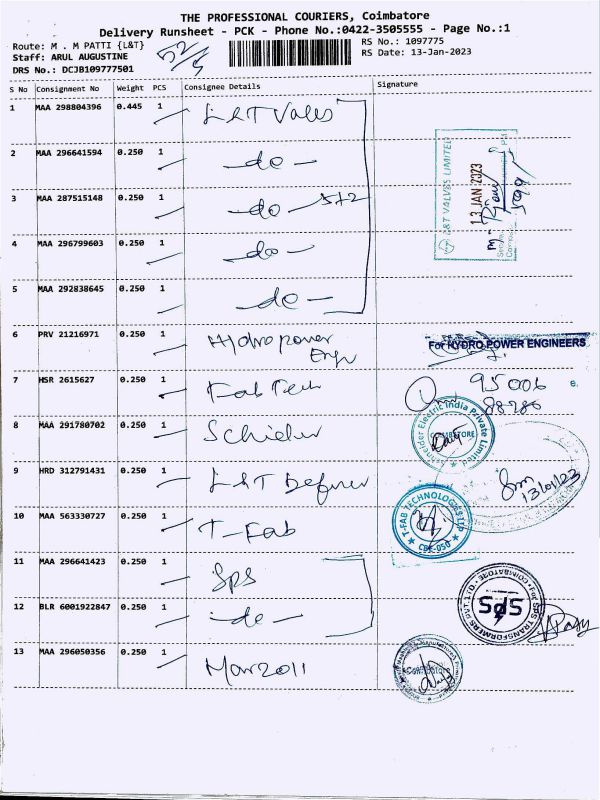 THE PROFESSIONAL COURIERS, Coimbatore
Delivery Runsheet - PCK - Phone No.:0422-3505555 - Page No.:1
Route: M . M PATTI {L&T} RS No.: 1097775
Staff: ARUL AUGUSTINE RS Date: 13-Jan-2023
DRS No.: DCJB109777501
S No Consignment No Weight PCS Consignee Details Signature
1 MAA 298804396 0.445 1 L&T Valves
2 MAA 296641594 0.250 1 -do-
3 MAA 287515148 0.250 1 -do-
4 MAA 296799603 0.250 1 -do-
5 MAA 292838645 0.250 1 -do-
L&T VALVES LIMITED
13 JAN 2023
6 PRV 21216971 0.250 1 Hydropower
Engr
For HYDRO POWER ENGINEERS
7 HSR 2615627 0.250 1 Fab Tech
95006
88286
8 MAA 291780702 0.250 1
Schneider Electric India Private Limited
COIMBATORE
9 HRD 312791431 0.250 1 L&T
13/01/23
10 MAA 563330727 0.250 1 T-Fab
T-FAB TECHNOLOGIES LLP
CBE-050
11 MAA 296641423 0.250 1 SPS
12 BLR 6001922847 0.250 1 -do-
For SPS TRANSFORMERS PVT.LTD. COIMBATORE
SPS
13 MAA 296050356 0.250 1